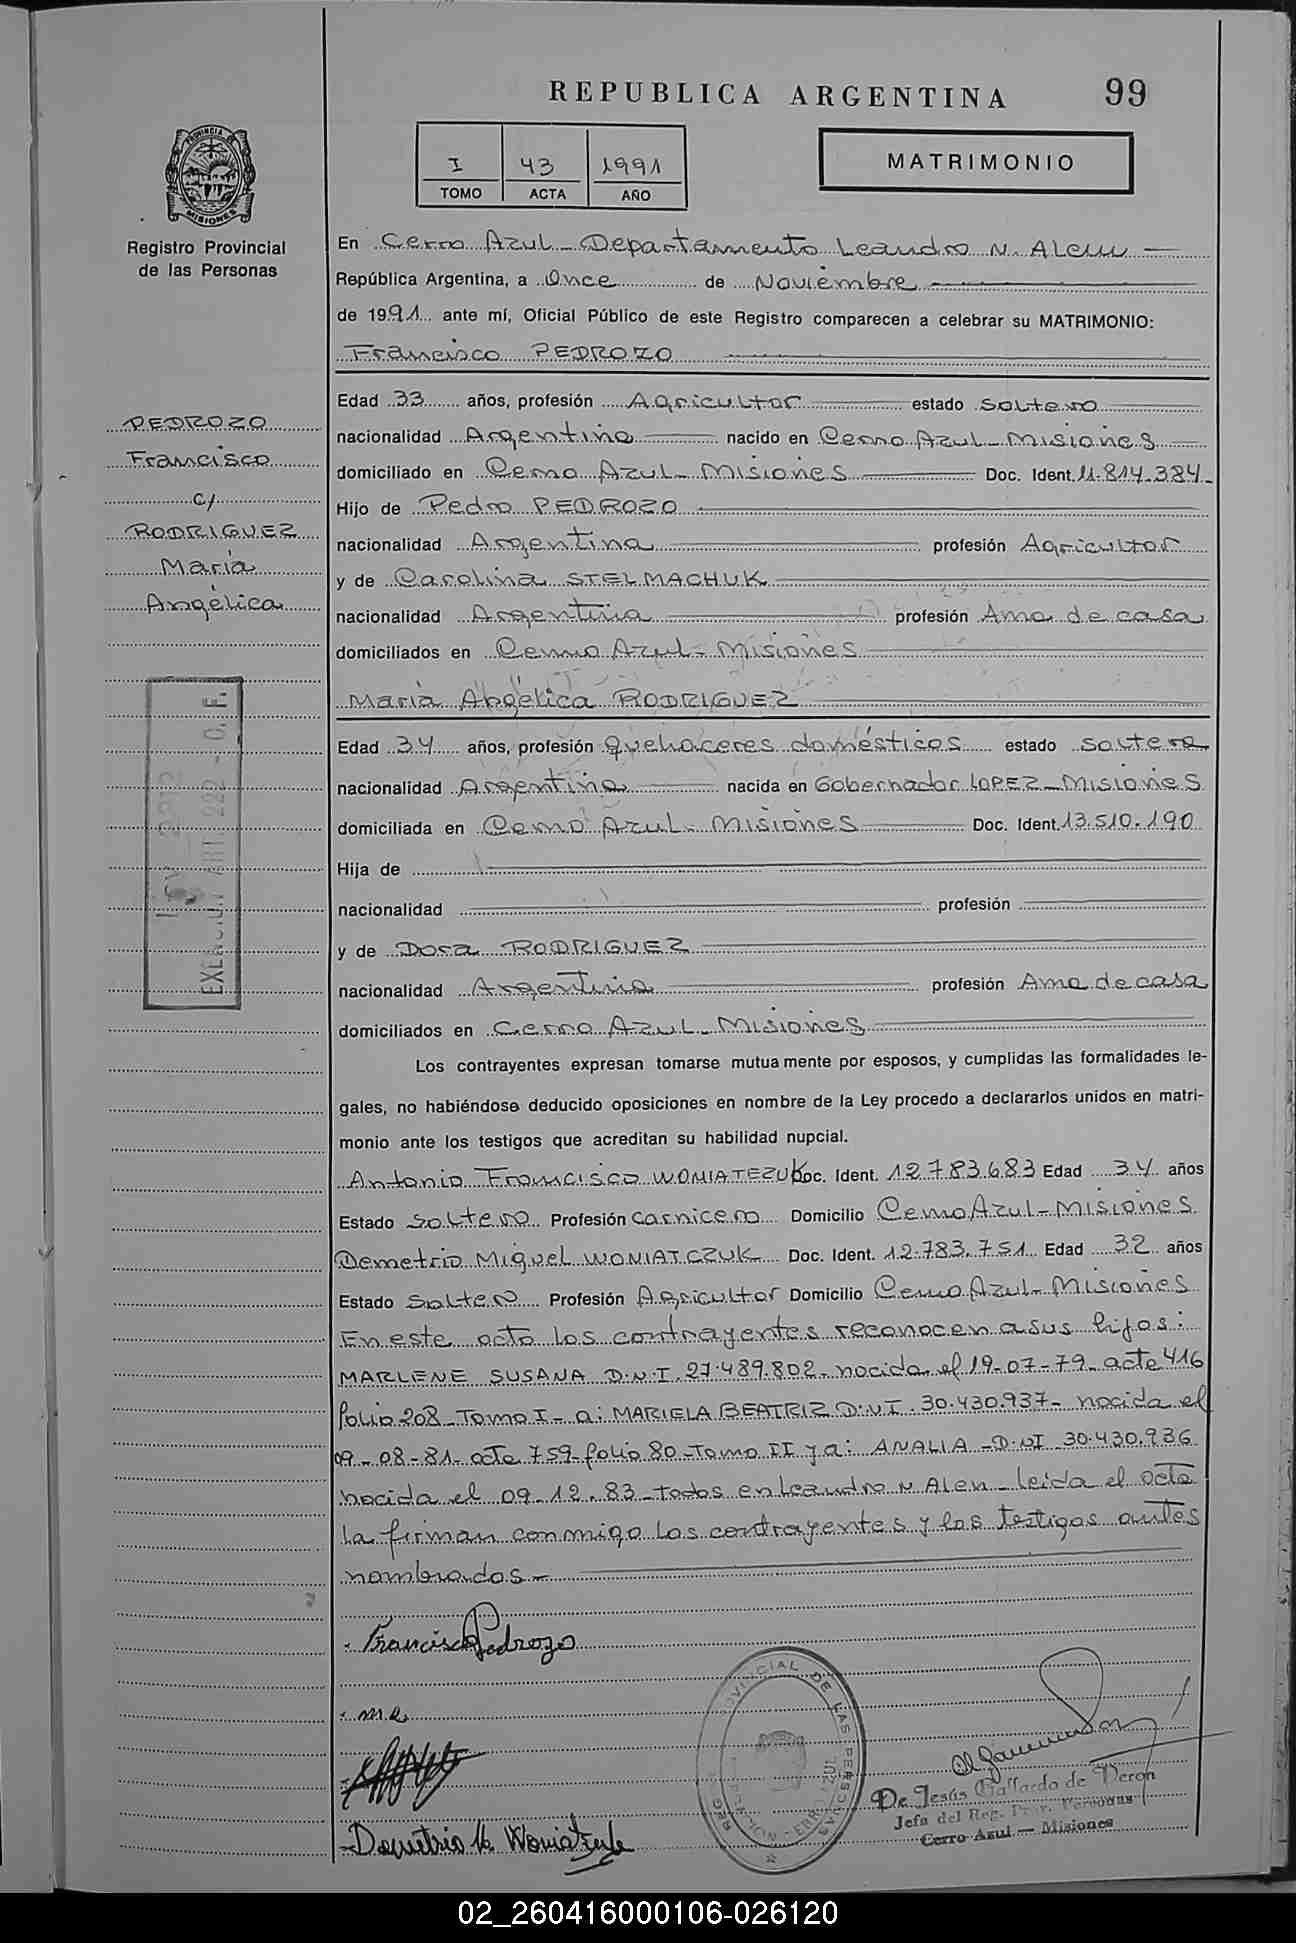 REPUBLICA ARGENTINA 99
I 43 1991
TOMO ACTA AÑO
MATRIMONIO
PROVINCIA DE
MISIONES
Registro Provincial
de las Personas
PEDROZO
Francisco
c/
RODRIGUEZ
María
Angélica
LEY
EXENCION ART. 222 - C. F.
En Cerro Azul - Departamento Leandro N. Alem
República Argentina, a Once de Noviembre
de 1991 ante mí, Oficial Público de este Registro comparecen a celebrar su MATRIMONIO:
Francisco PEDROZO
Edad 33 años, profesión Agricultor estado soltero
nacionalidad Argentino nacido en Cerro Azul - Misiones
domiciliado en Cerro Azul - Misiones Doc. Ident. 11.814.384
Hijo de Pedro PEDROZO
nacionalidad Argentina profesión Agricultor
y de Carolina STELMACHUK
nacionalidad Argentina profesión Ama de casa
domiciliados en Cerro Azul - Misiones
María Angélica RODRIGUEZ
Edad 34 años, profesión quehaceres domésticos estado soltera
nacionalidad Argentina nacida en Gobernador LOPEZ - Misiones
domiciliada en Cerro Azul - Misiones Doc. Ident. 13.510.190
Hija de
nacionalidad profesión
y de Dora RODRIGUEZ
nacionalidad Argentina profesión Ama de casa
domiciliados en Cerro Azul - Misiones
Los contrayentes expresan tomarse mutuamente por esposos, y cumplidas las formalidades le-
gales, no habiéndose deducido oposiciones en nombre de la Ley procedo a declararlos unidos en matri-
monio ante los testigos que acreditan su habilidad nupcial.
Antonio Francisco WONIATEZUK Doc. Ident. 12.783.683 Edad 34 años
Estado soltero Profesión carnicero Domicilio Cerro Azul - Misiones
Demetrio Miguel WONIATCZUK Doc. Ident. 12.783.751 Edad 32 años
Estado soltero Profesión Agricultor Domicilio Cerro Azul - Misiones
En este acto los contrayentes reconocen a sus hijos:
MARLENE SUSANA D.N.I. 27.489.802 - nacida el 19-07-79 - acta 416
folio 208 - Tomo I - a: MARIELA BEATRIZ D.N.I. 30.430.937 - nacida el
09-08-81 - acta 759 - folio 80 - Tomo II y a: ANALIA - D.N.I 30.430.936
nacida el 09.12.83 - todos en Leandro N Alen - leida el acta
la firman conmigo los contrayentes y los testigos antes
nombrados -
Francisco Pedrozo
m.R
Demetrio M. Woniatczuk
REG. PROVINCIAL DE LAS PERSONAS
De Jesús Gallardo de Veron
Jefa del Reg. Prov. Personas
Cerro Azul — Misiones
02_260416000106-026120